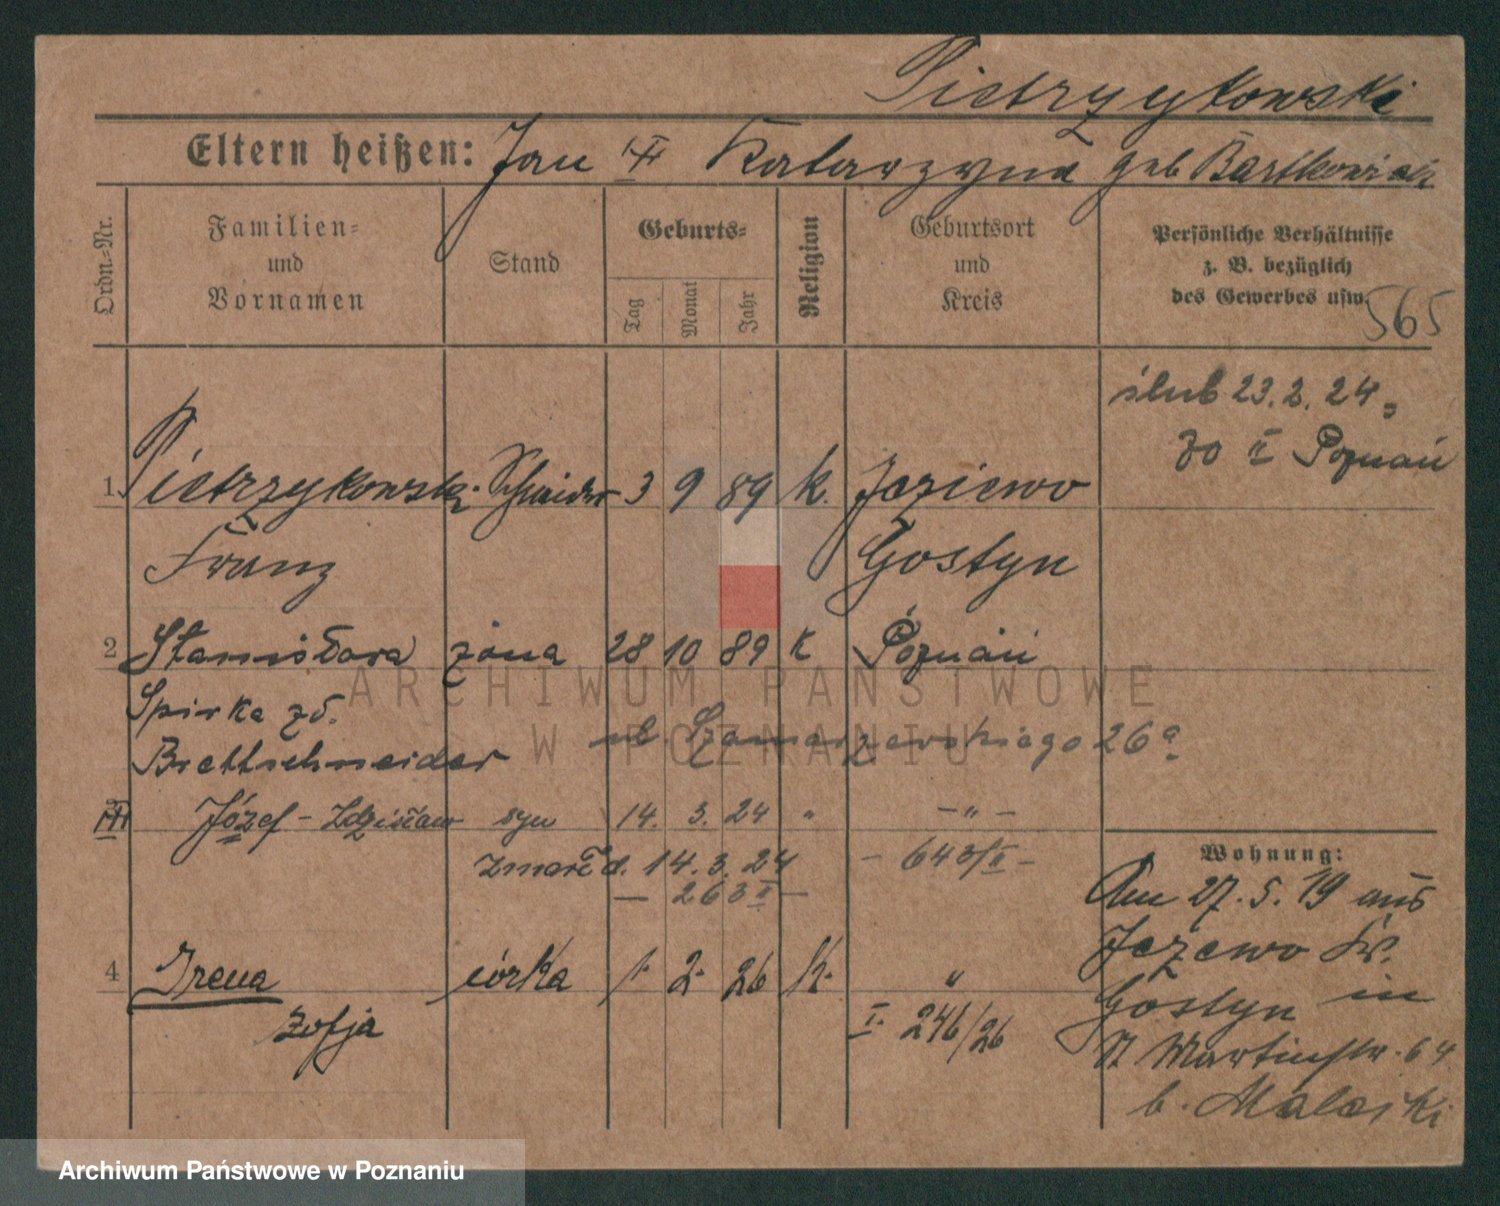 Pietrzykowski
Eltern heißen: Jan Katarzyna geb Bartkowiak
Ordn=Nr.
Familien=
und
Vornamen
Stand
Geburts=
Tag
Monat
Jahr
Religion
Geburtsort
und
Kreis
Persönliche Verhältnisse
z. B. bezüglich
des Gewerbes usw.
565
ślub 23.2.24
II Poznań
1 Pietrzykowski Schneider 3 9 89 k. Jeziewo
Franz Gostyn
2 Stanisława żona 28 10 89 k Poznań
Spirka zd.
Brettschneider
ul. Szamarzewskiego 26a
Józef - Zdzisław syn 14. 3. 24 " - " -
zmarł d. 14.3.24 - 643/II -
- 263 II -
4 Irena córka 1. 2. 26 k. "
Zofja I. 246/26
Wohnung:
Am 27.5.19 aus
Jezewo Kr.
Gostyn in
St Martinstr. 64
b. Malecki
ARCHIWUM PAŃSTWOWE
W POZNANIU
Archiwum Państwowe w Poznaniu